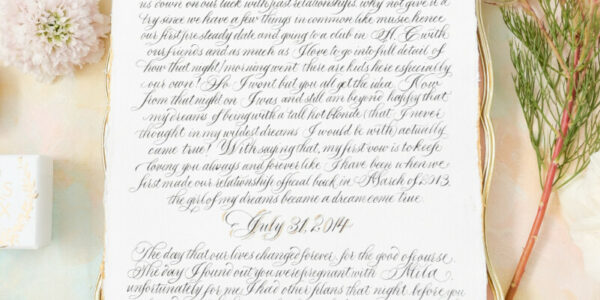 us down on our luck with past relationships, why not give it a
try since we have a few things in common like music hence
our first pre steady date and going to a club in A.C with
our friends and as much as I love to go into full detail of
how that night/morning went there are kids here especially
our own! So I wont but you all get the idea. Now
from that night on I was and still am beyond happy that
my dreams of being with a tall hot blonde (that I never
thought in my wildest dreams I would be with) actually
came true! With saying that, my first vow is to keep
loving you always and forever like I have been when we
first made our relationship official back in March of 2013,
the girl of my dreams became a dream come true.
July 31, 2014
The day that our lives changed forever for the good of course.
The day I found out you were pregnant with Mila
unfortunately for me I had other plans that night before you